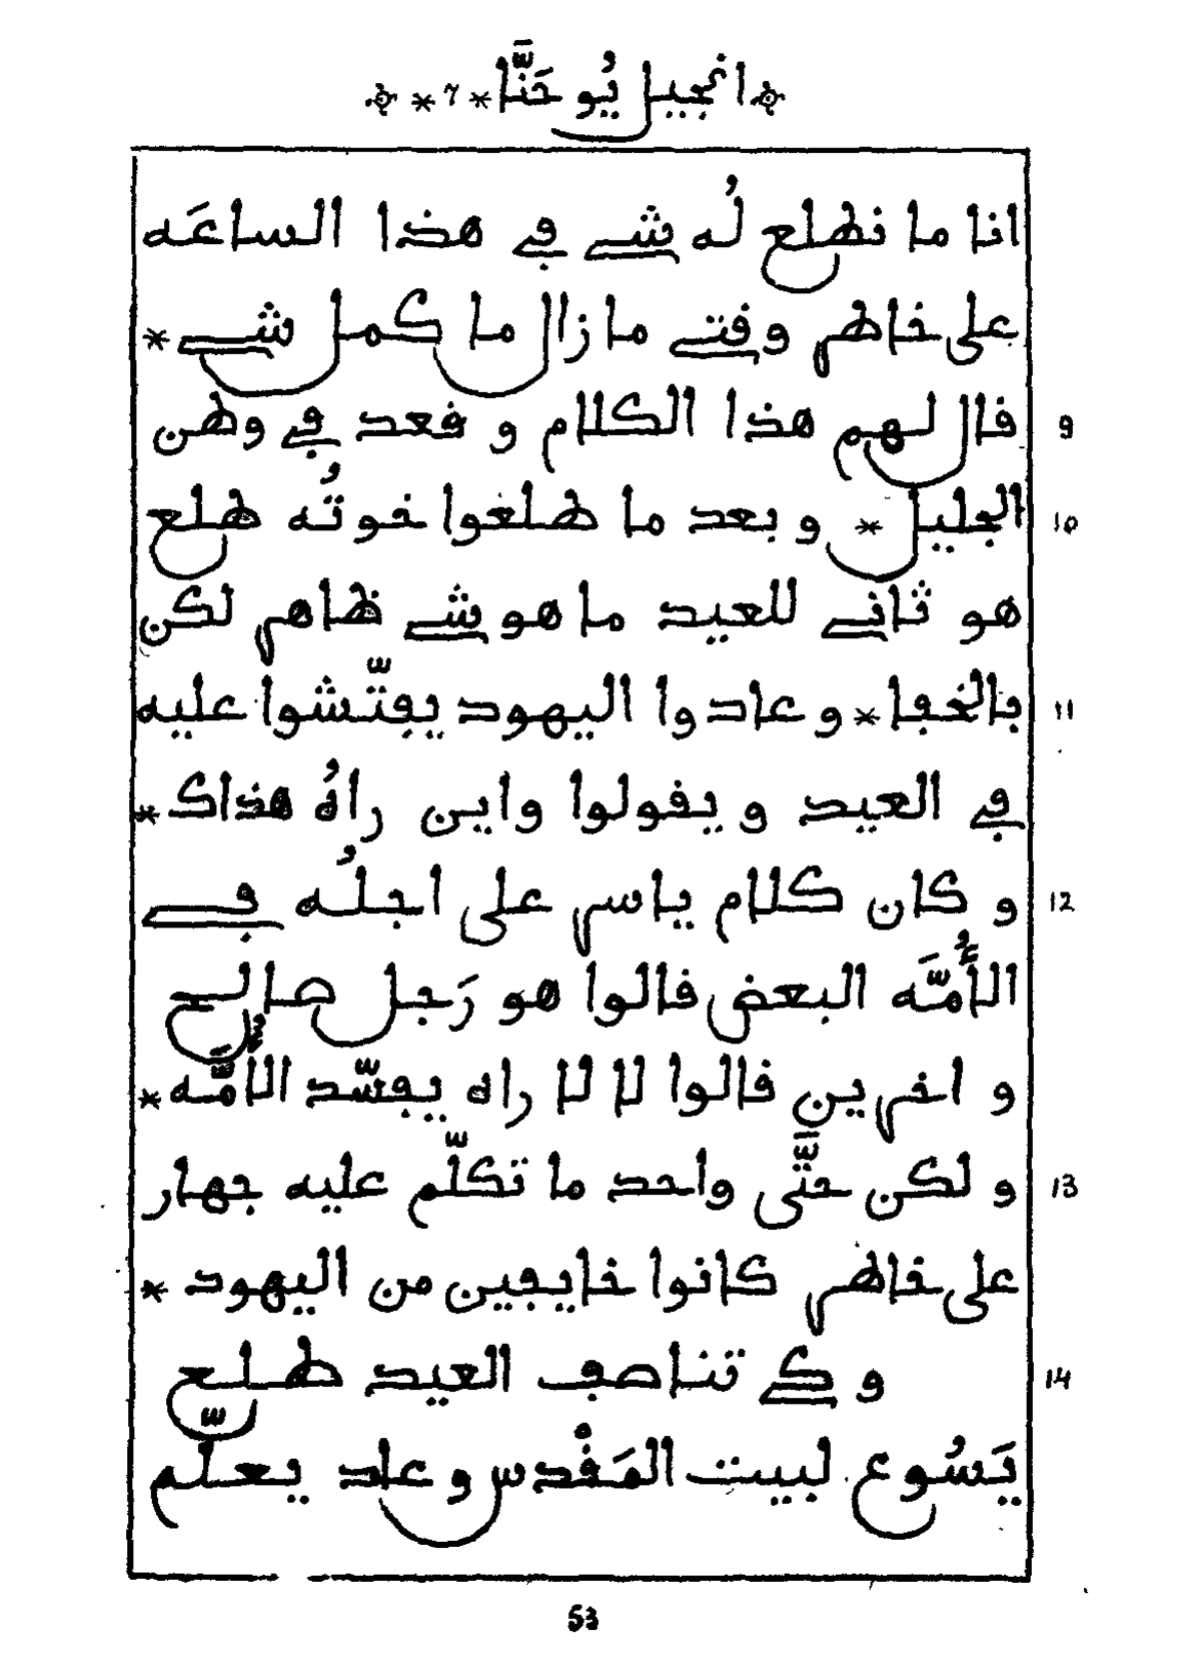 انجيل يُوحَنَّا * 7 *
انا ما نطلع لُه شي في هذا الساعَه
على خاطر وقتي ما زال ما كمل شي *
9 قال لهم هذا الكلام و قعد في وطن
10 الجليل * و بعد ما طلعوا خوتُه طلع
هو ثاني للعيد ما هو شي ظاهر لكن
11 بالخفا * و عادوا اليهود يفتّشوا عليه
في العيد و يقولوا واين راهُ هذاك *
12 و كان كلام ياسر على اجلُه في
الأُمَّه البعض قالوا هو رَجل صالح
و اخرين قالوا لا لا راه يفسّد الأُمَّه *
13 و لكن حتَّى واحد ما تكلّم عليه جهار
على خاطر كانوا خايفين من اليهود *
14 و كي تناصف العيد طلع
يَسُوع لبيت المَقْدس و عاد يعلّم
53